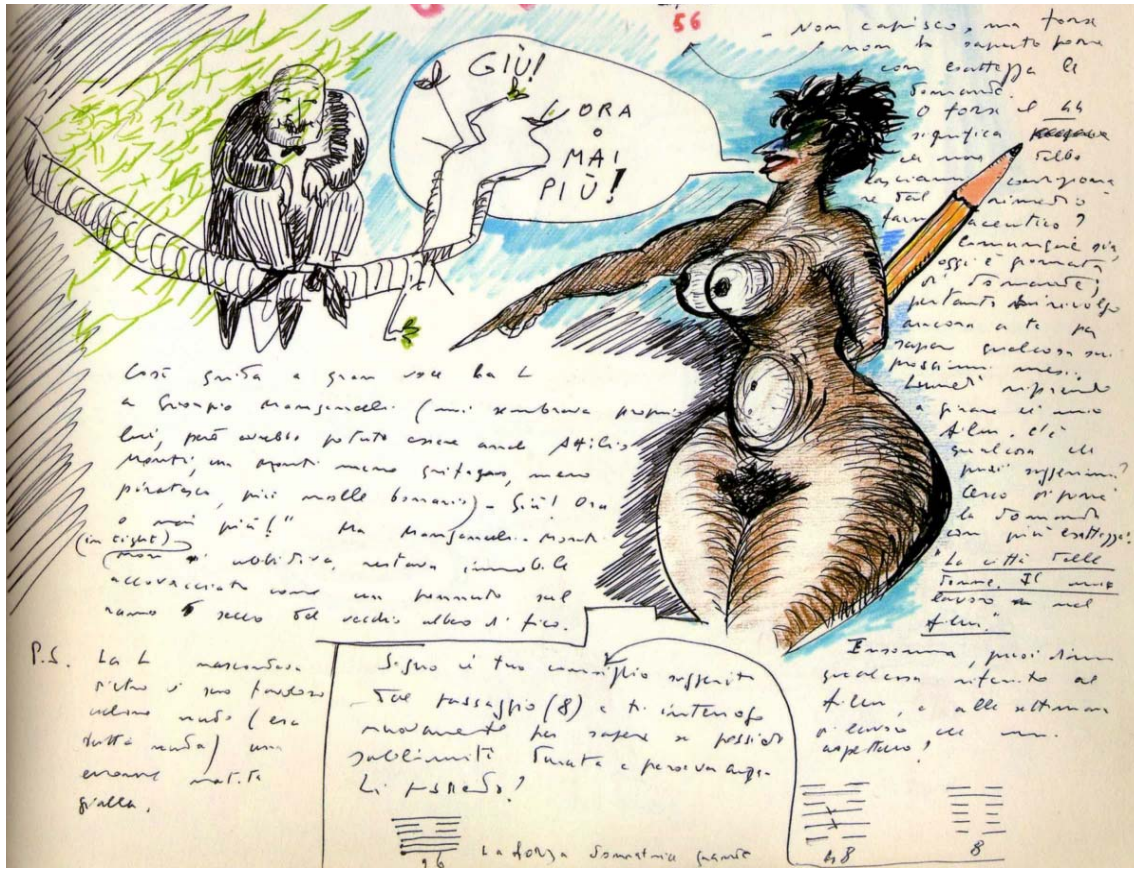 56
GIÙ!
L'ORA
O
MAI
PIÙ!
Così grida a gran voce la L
a Giorgio Manganelli (mi sembrava proprio
lui, però avrebbe potuto essere anche Attilio
Monti, un Monti meno grifagno, meno
piratesco, più molle bonario) - Giù! Ora
o mai più!" Ma Manganelli-Monti
(in tight)
non ubbidiva, restava immobile
accovacciato come un pennuto sul
ramo secco del vecchio albero di fico.
P.S. La L nascondeva
dietro il suo fastoso
culone nudo (era
tutta nuda) una
enorme matita
gialla.
Seguo il tuo consiglio suggerito
dal passaggio (8) e ti interrogo
nuovamente per sapere se possiedo
sublimità durata e perseveranza
26 La forza domatrice grande
- Non capisco, ma forse
non ho saputo porre
con esattezza la
domanda.
O forse il 44
significa
che non debbo
lasciarmi
dal rimedio
farmaceutico?
Comunque sia,
oggi è giornata
di domande,
pertanto mi rivolgo
ancora a te per
saper qualcosa sui
prossimi mesi.
Lunedì riprendo
a girare il mio
film, c'è
qualcosa che
puoi suggerirmi?
Cerco di porre
la domanda
con più esattezza:
"La città delle
donne. Il mio
lavoro nel
film."
Insomma, puoi dirmi
qualcosa riferito al
film, e alle settimane
di lavoro che mi
aspettano?
48 8